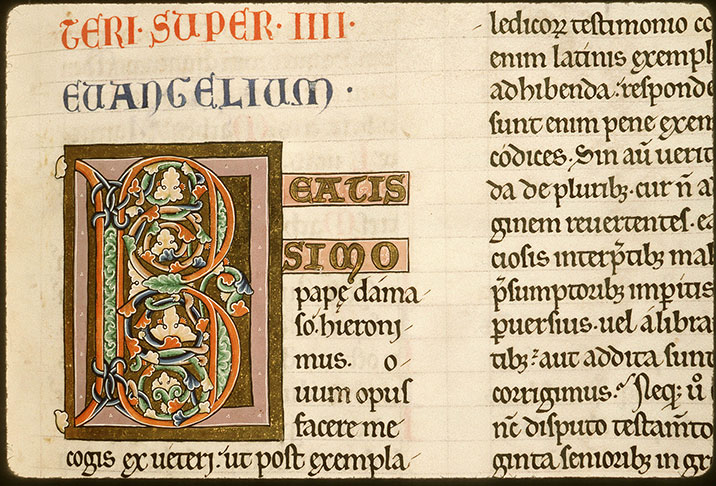 TERI · SUPER · IIII ·
EUANGELIUM ·
BEATIS
SIMO
papę dáma-
so. hieroni-
mus. o
uum opus
facere me
cogis ex ueteri. ut post exempla-
ledicoꝝ testimonio co
enim latinis exempl
adhibenda. responde
sunt enim pene exem
codices. Sin aū uerit
da de pluribꝫ. cur n̄ a
ginem reuertentes. ea
ciosis interp̄tibꝫ mal
p̄sumptoribꝫ imꝑitis
ꝑuersius. uel á libra
tibꝫ: aut addita sunt
corrigimus. Neqꝫ ū
nc̄ disputo testam̄to
ginta senioribꝫ in gr